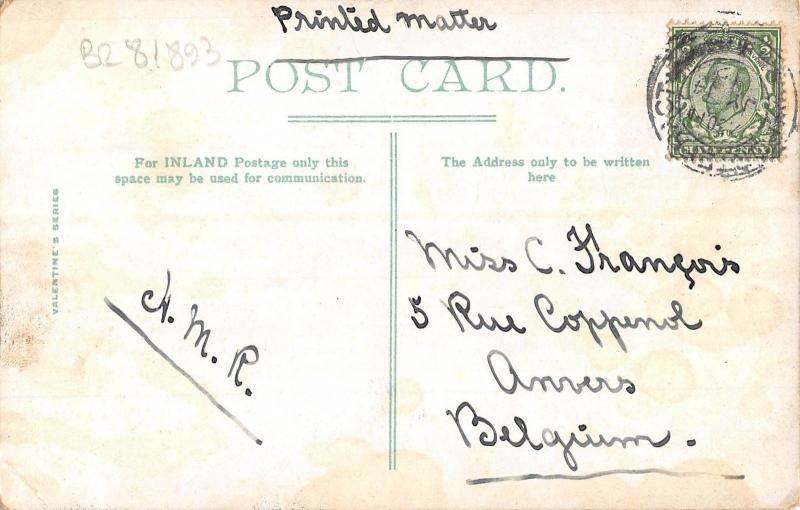 Printed matter
BR 81893
POST CARD.
For INLAND Postage only this
space may be used for communication.
The Address only to be written
here
VALENTINE'S SERIES
A. M. R.
Miss C. François
5 Rue Coppenol
Anvers
Belgium.